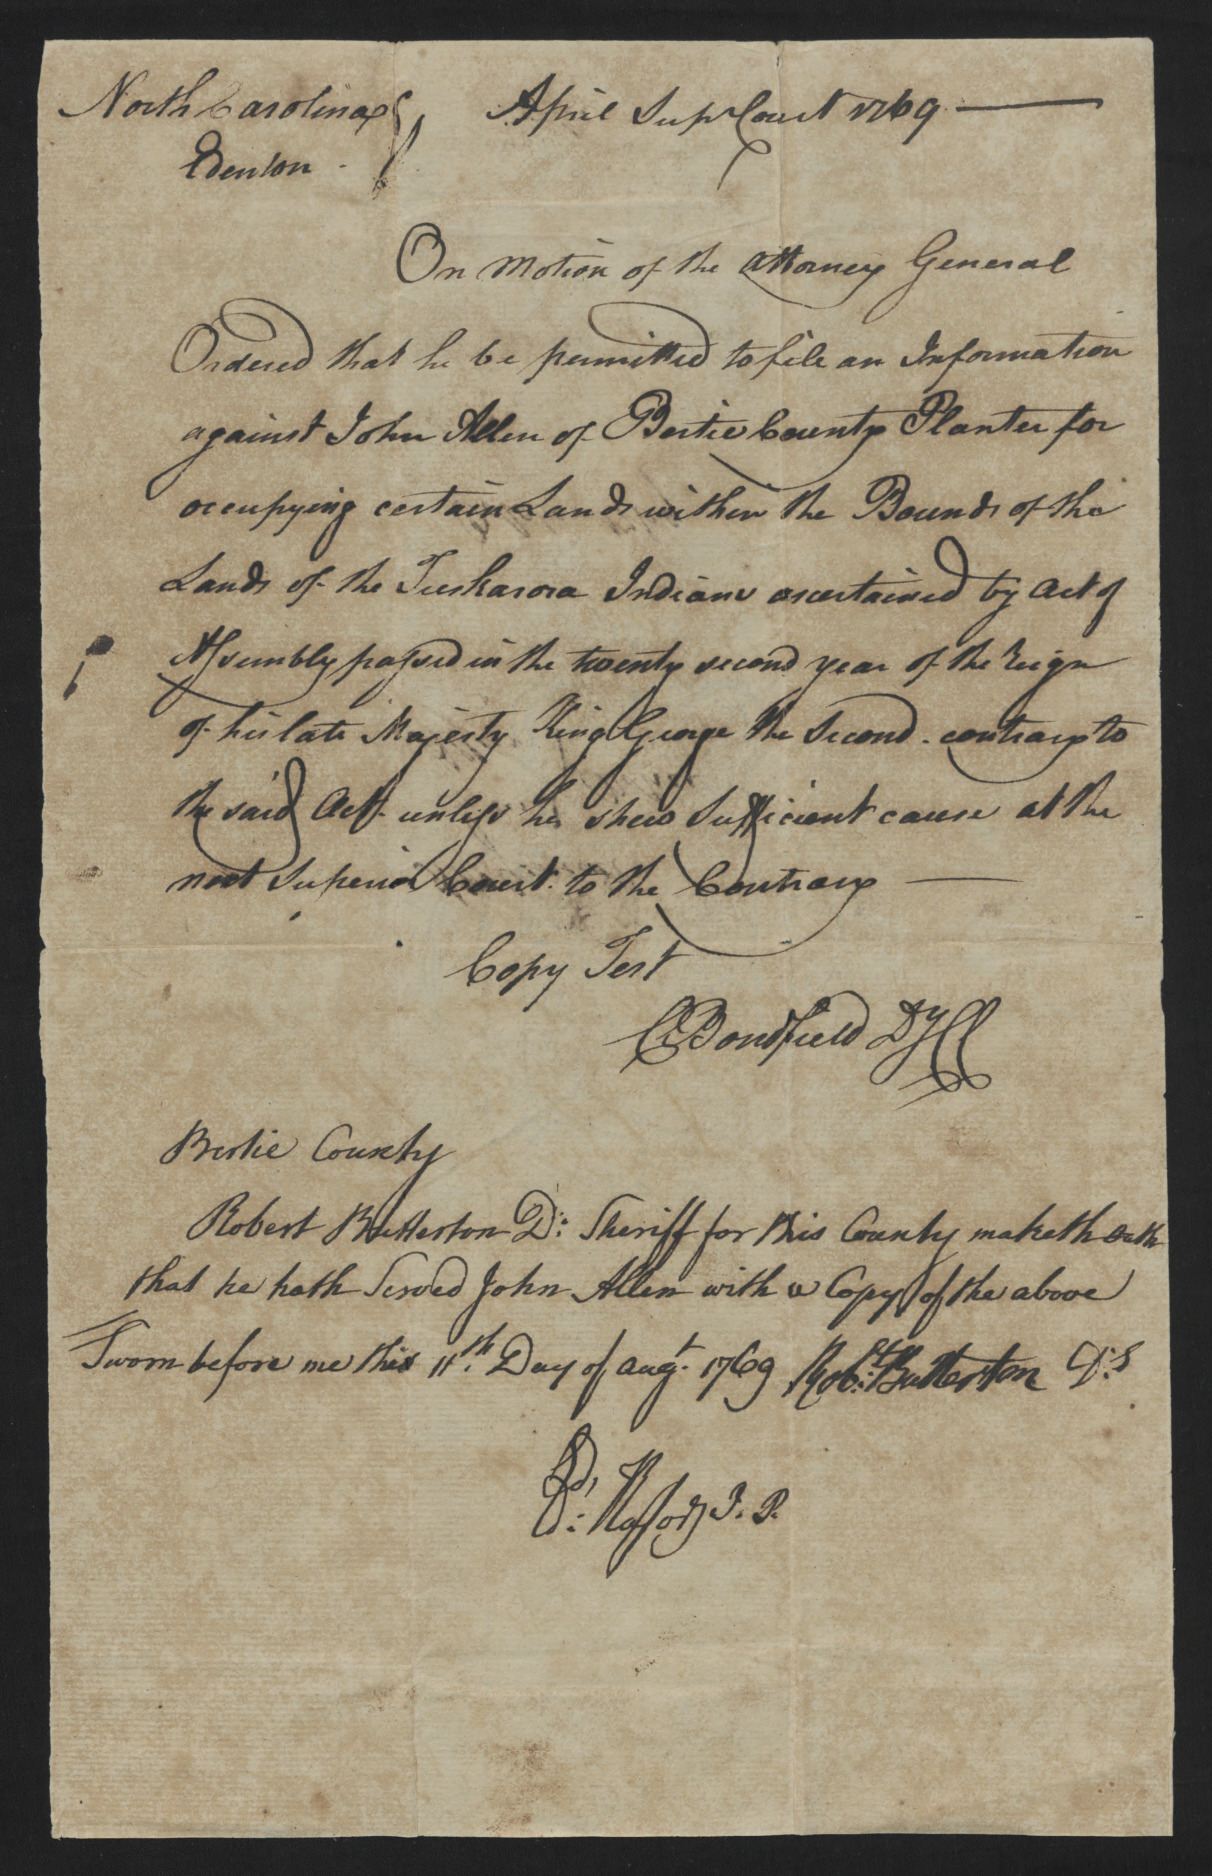 North Carolina
April Supr Court 1769
Edenton
On Motion of the Attorney General
Ordered that he be permitted to file an Information
against John Allen of Bertie County Planter for
occupying certain Lands within the Bounds of the
Lands of the Tuskarora Indians ascertained by Act of
Assembly passed in the twenty second year of the Reign
of his late Majesty King George the Second contrary to
the said Act unless he shew Sufficient cause at the
next Superior Court to the Contrary
Copy Test
Bondfield DyCl
Bertie County
Robert Butterton D: Sheriff for this County maketh Oath
that he hath Served John Allen with a Copy of the above
Sworn before me this 11th. Day of augt. 1769 Robt: Butterton D:S
J. P.